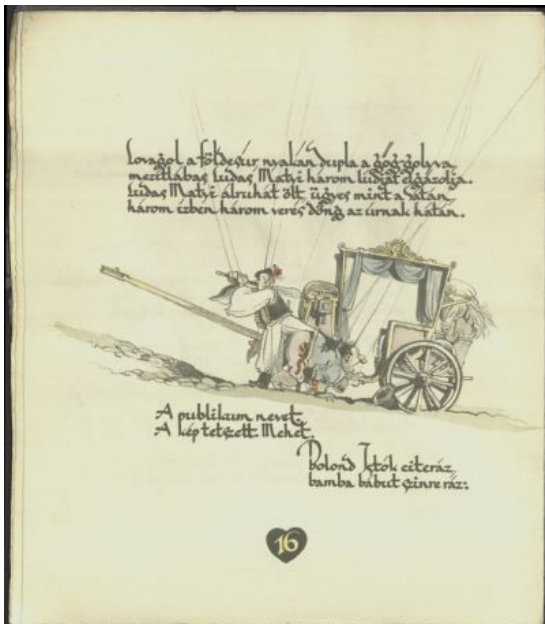 Lovagol a földesúr nyakán dupla a gőg golyva
mezitlábas Ludas Matyi három lúdját elgázolja.
Ludas Matyi álruhát ölt ügyes mint a sátán
három ízben három verés döng az úrnak hátán.
A publikum nevet.
A kép tetszett. Mehet.
Bolond Istók citeráz,
bamba bábut színre ráz:
16